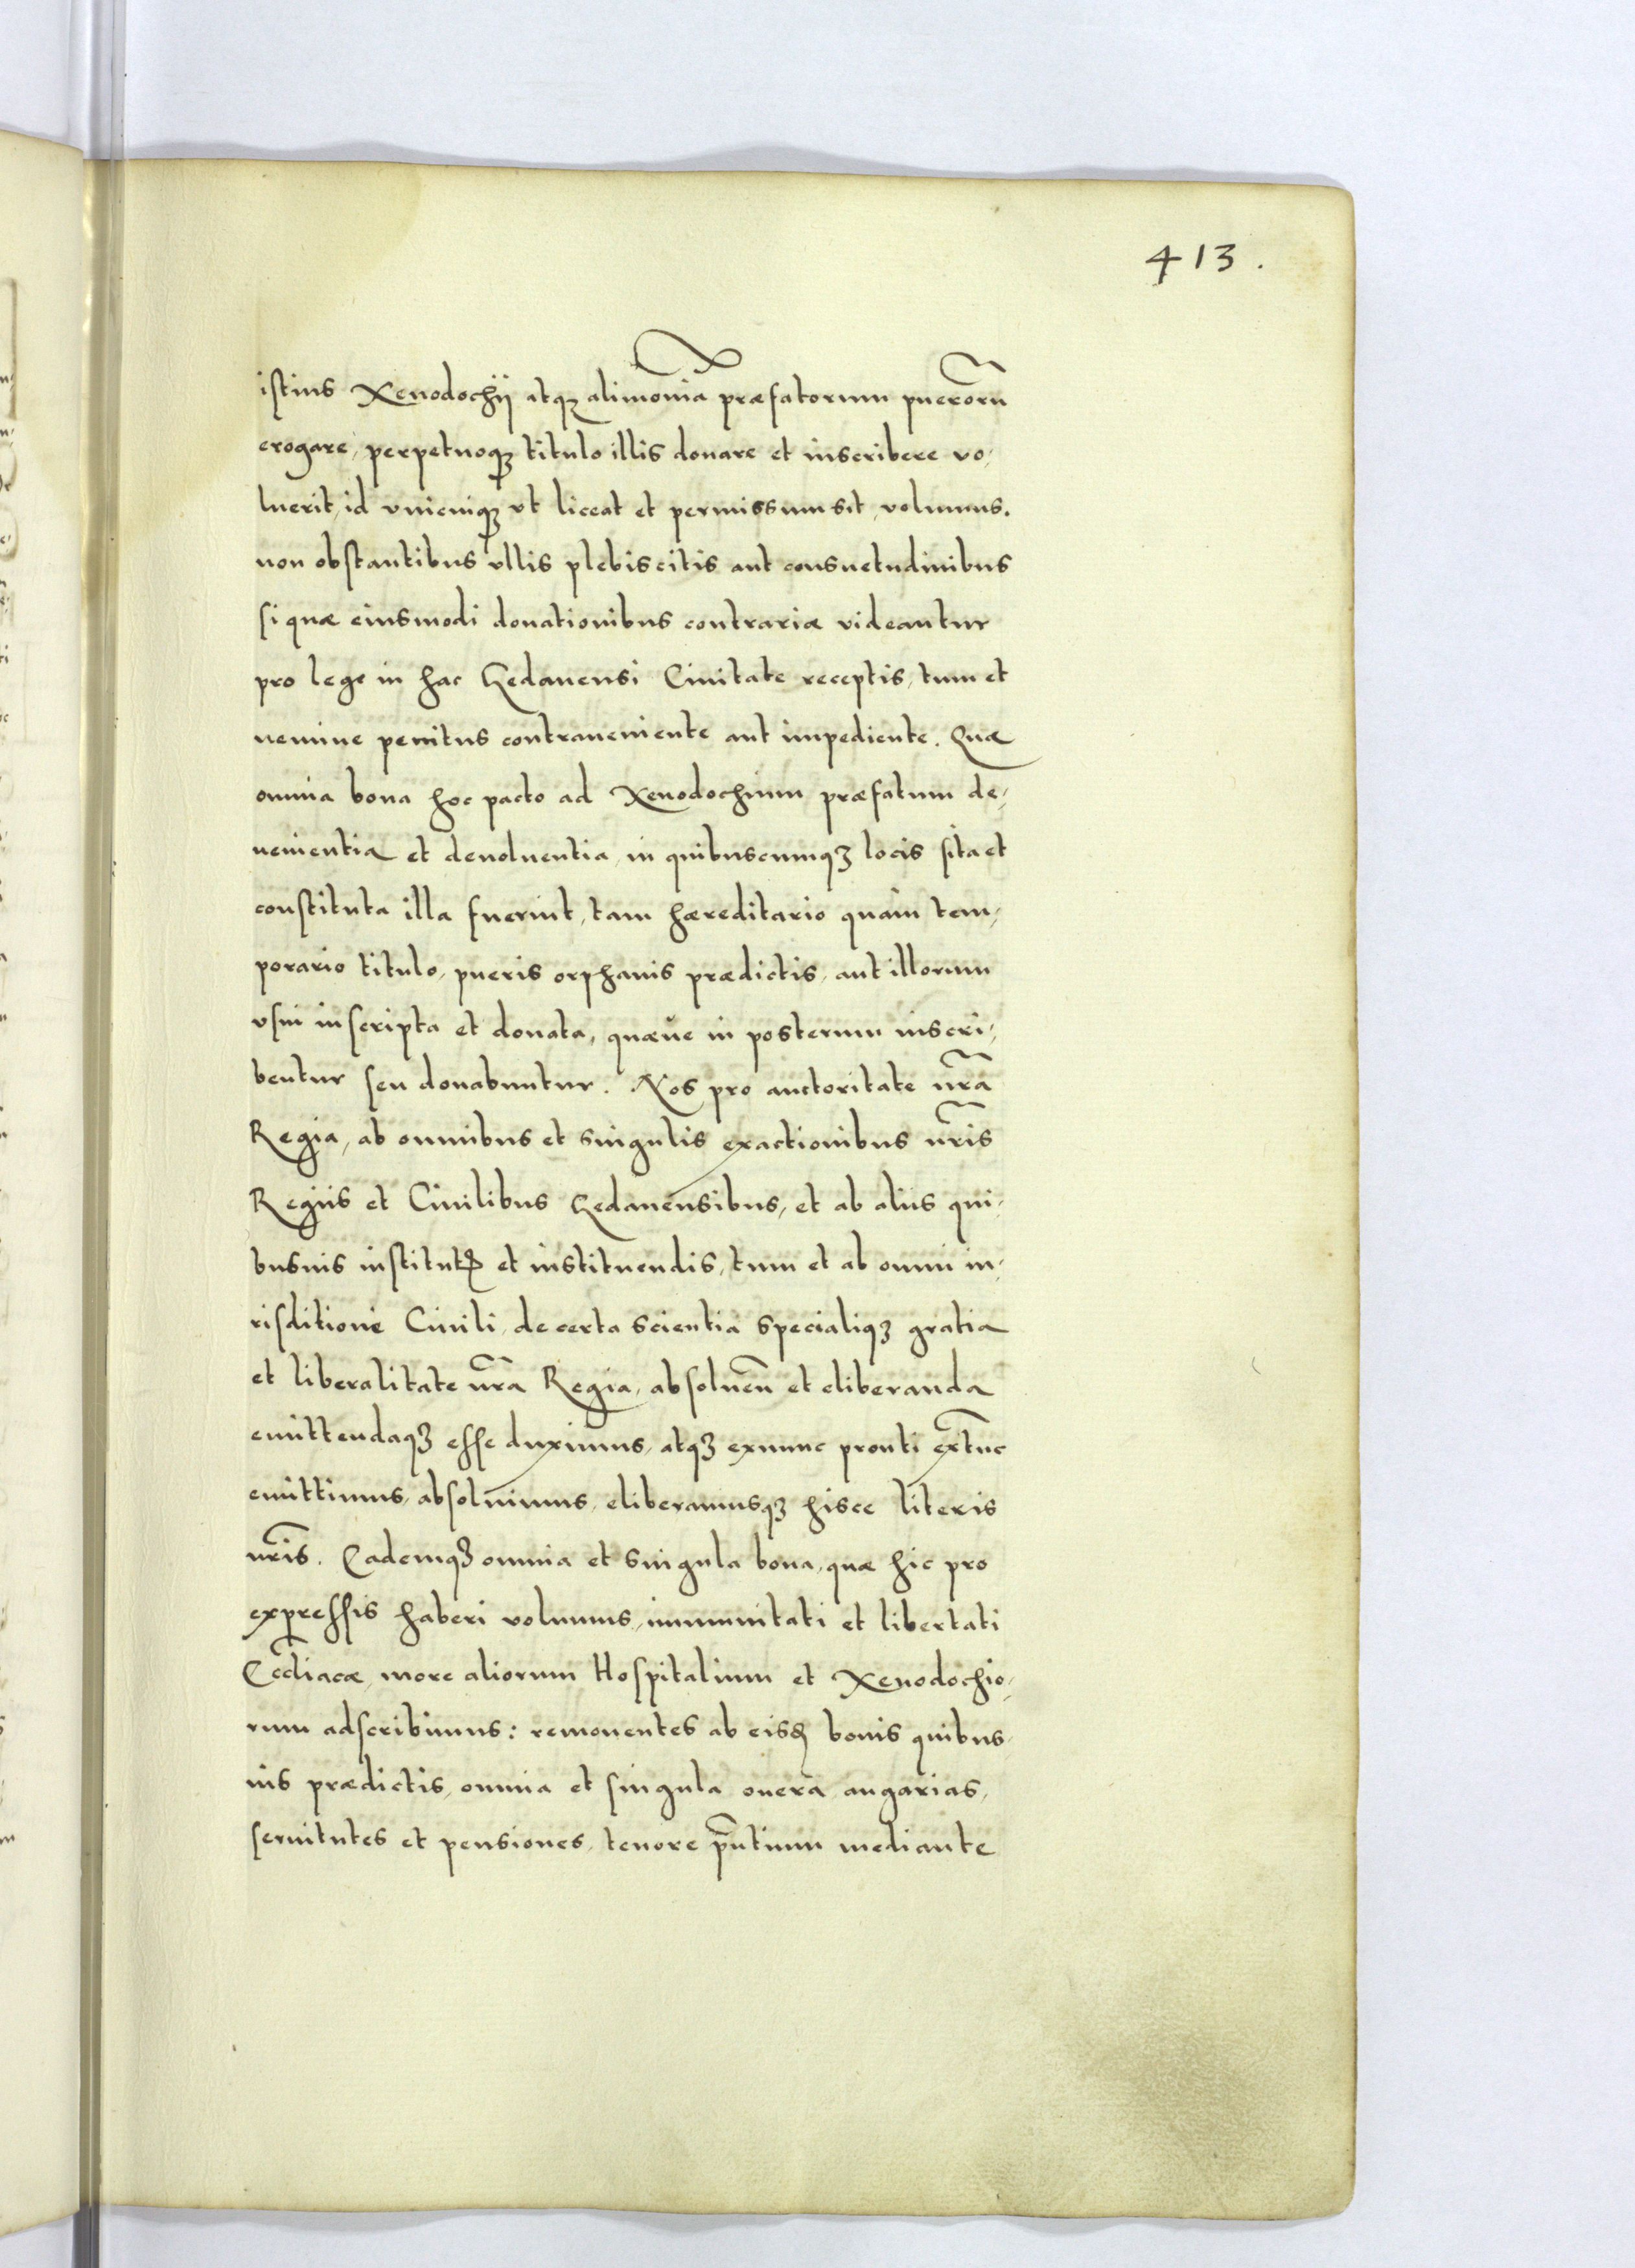 413.
istius Xenodochij atqꝫ alimonia præfatorum puerorũ
erogare, perpetuoqꝫ titulo illis donare et inscribere vo,
luerit, id vnicuiqꝫ vt liceat et permissum sit, volumus.
non obstantibus vllis plebiscitis aut consuetudinibus
si quæ eiusmodi donationibus contrariæ videantur
pro lege in hac Gedanensi Ciuitate receptis, tum et
nemine penitus contraueniente aut impediente. Quæ
omnia bona hoc pacto ad Xenodochium præfatum de,
uenientia et deuoluentia, in quibuscumqꝫ locis sita et
constituta illa fuerint, tam hæreditario quàm tem,
porario titulo, pueris orphanis prædictis, aut illorum
vsui inscripta et donata, quæue in posterum inscri,
bentur seu donabuntur. Nos pro auctoritate nr̃a
Regia, ab omnibus et singulis exactionibus nr̃is
Regiis et Ciuilibus Gedanensibus, et ab aliis qui,
busuis institutꝭ et instituendis, tum et ab omni iu,
risditione Ciuili, de certa scientia specialiqꝫ gratia
et liberalitate nr̃a Regia, absoluen̄ et eliberanda
emittendaqꝫ esse duximus, atqꝫ exnunc prouti ex̃tunc
emittimus, absoluimus, eliberamusqꝫ hisce literis
nr̃is. Eademqꝫ omnia et singula bona, quæ hic pro
expressis haberi volumus, immunitati et libertati
Ecc̃liacæ, more aliorum Hospitalium et Xenodochio,
rum adscribimus: remouentes ab eisdꝫ bonis quibus,
uis prædictis, omnia et singula onera angarias,
seruitutes et pensiones, tenore pñtium mediante